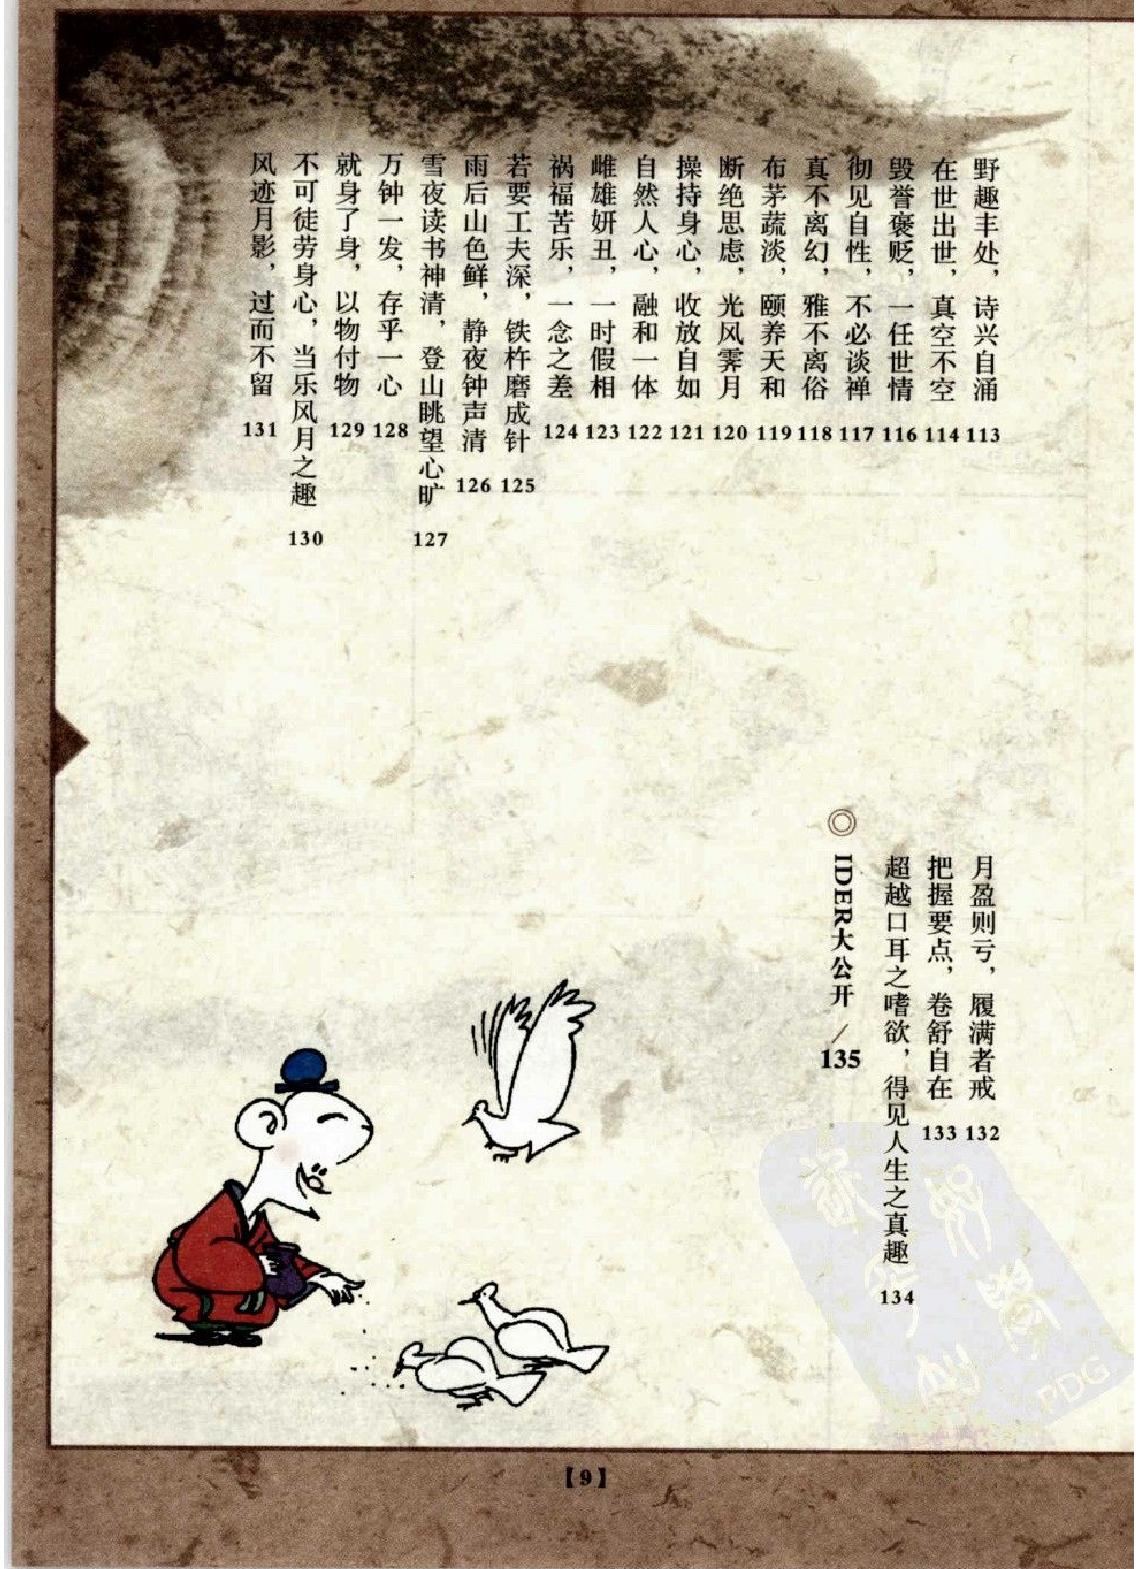 野趣丰处，诗兴自涌 113
在世出世，真空不空 114
毁誉褒贬，一任世情 116
彻见自性，不必谈禅 117
真不离幻，雅不离俗 118
布茅蔬淡，颐养天和 119
断绝思虑，光风霁月 120
操持身心，收放自如 121
自然人心，融和一体 122
雌雄妍丑，一时假相 123
祸福苦乐，一念之差 124
若要工夫深，铁杵磨成针 125
雨后山色鲜，静夜钟声清 126
雪夜读书神清，登山眺望心旷 127
万钟一发，存乎一心 128
就身了身，以物付物 129
不可徒劳身心，当乐风月之趣 130
风迹月影，过而不留 131
月盈则亏，履满者戒 132
把握要点，卷舒自在 133
超越口耳之嗜欲，得见人生之真趣 134
◎ IDER大公开 / 135
PDG
【9】